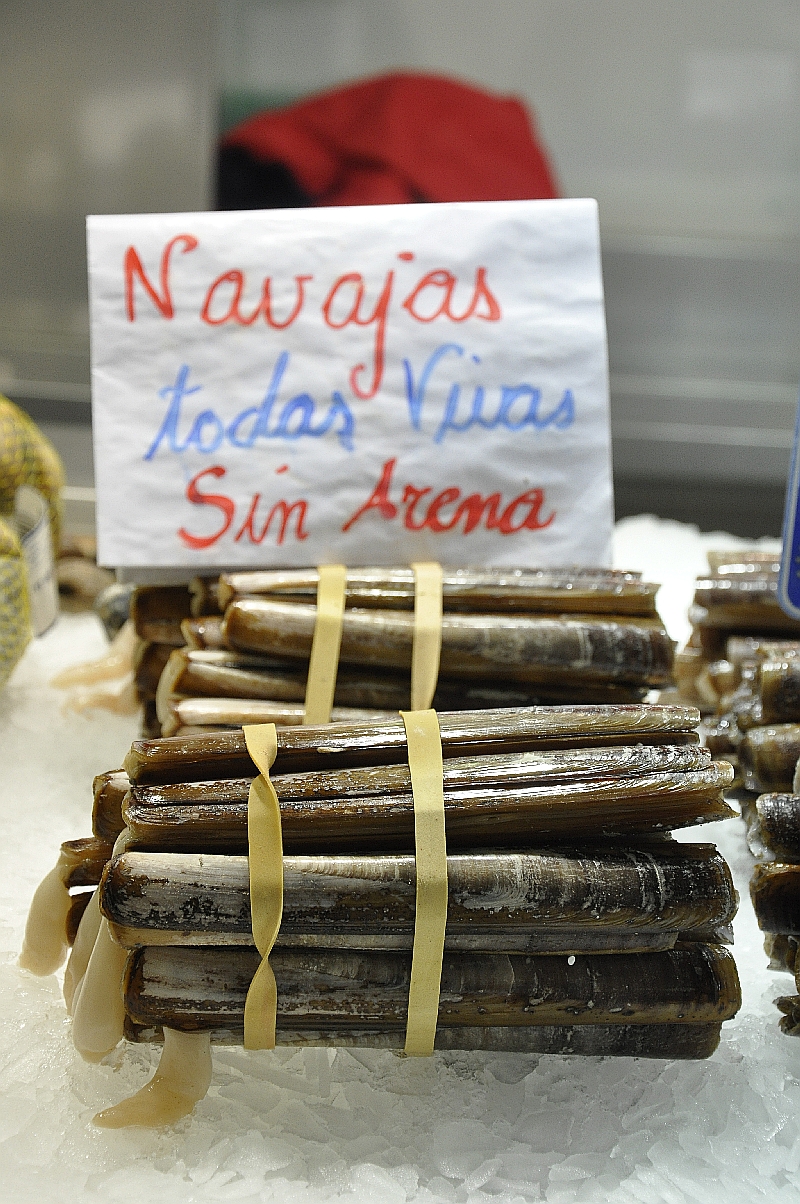 Navajas
todas Vivas
Sin Arena